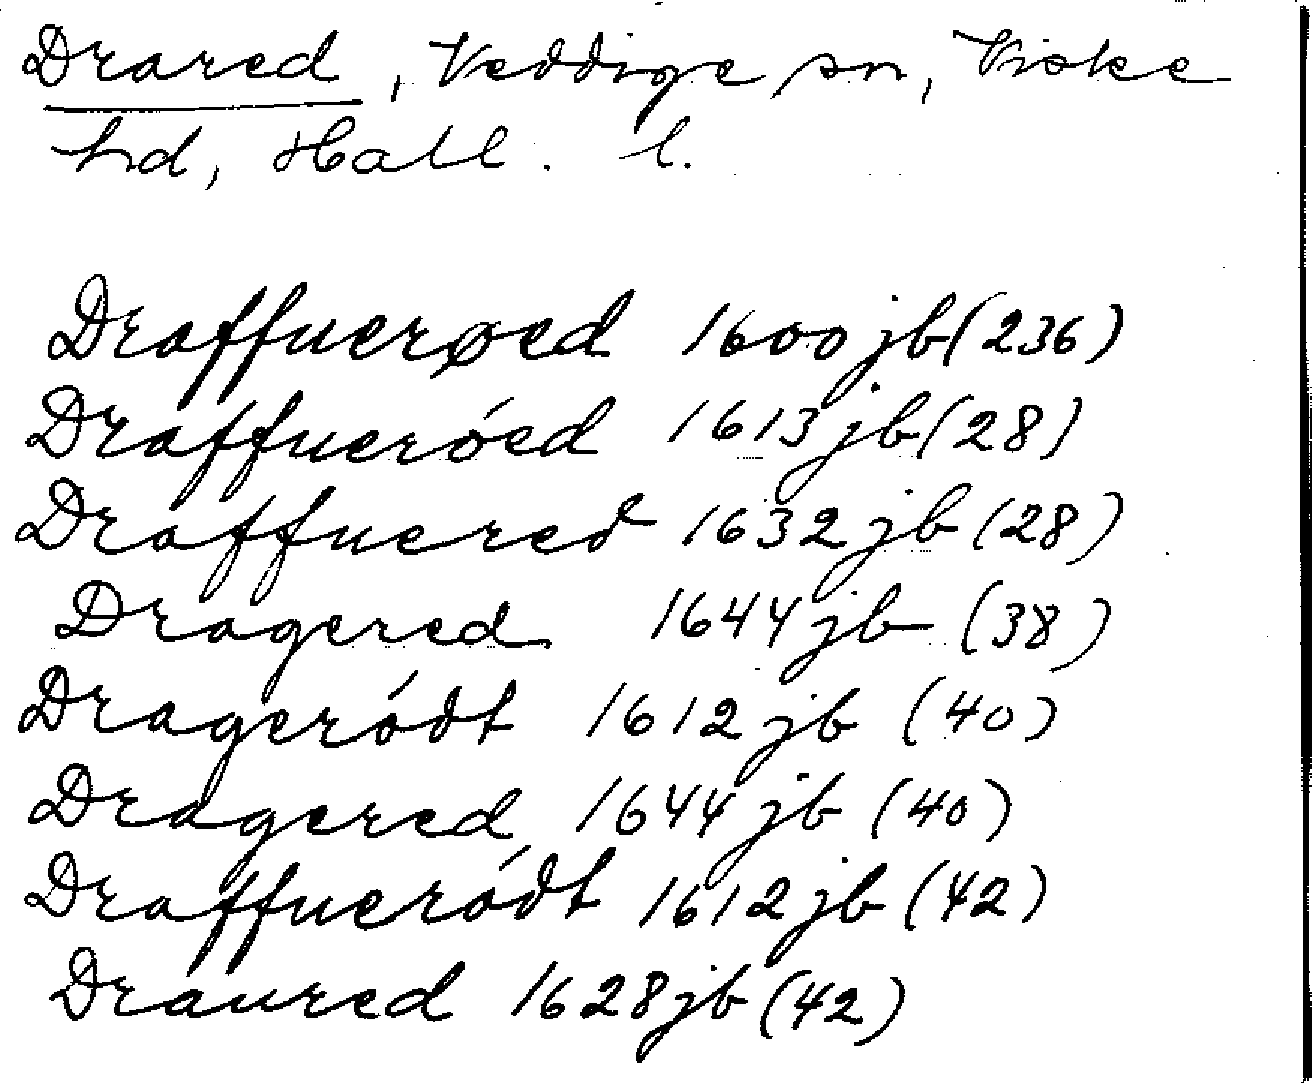 Drared, Veddige sn, Viske
hd, Hall. l.
Draffuerøed 1600 jb (236)
Draffueróed 1613 jb (28)
Draffuered 1632 jb (28)
Dragered 1644 jb (38)
Drageródt 1612 jb (40)
Dragered 1644 jb (40)
Draffueródt 1612 jb (42)
Draured 1628 jb (42)